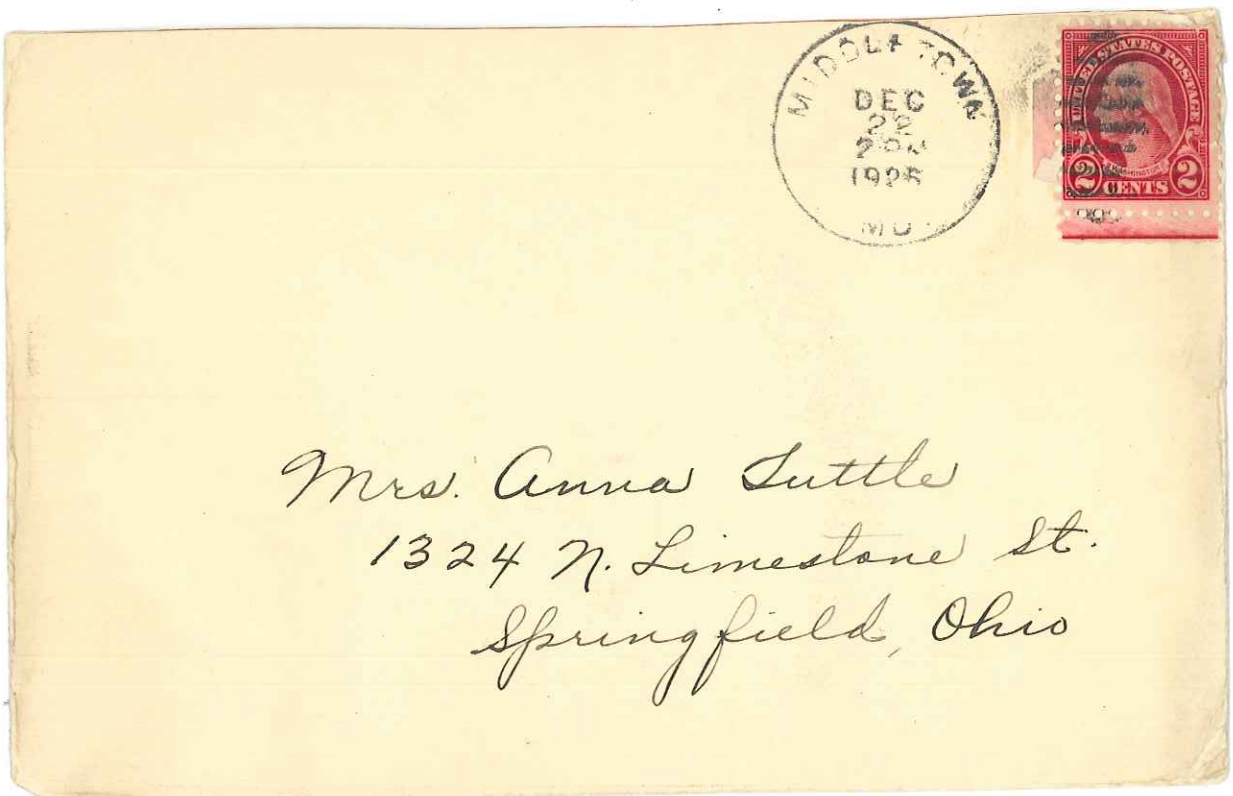 MIDDLETOWN
DEC
22
2 PM
MO
UNITED STATES POSTAGE
WASHINGTON
2 CENTS 2
Mrs. Anna Tuttle
1324 N. Limestone St.
Springfield, Ohio